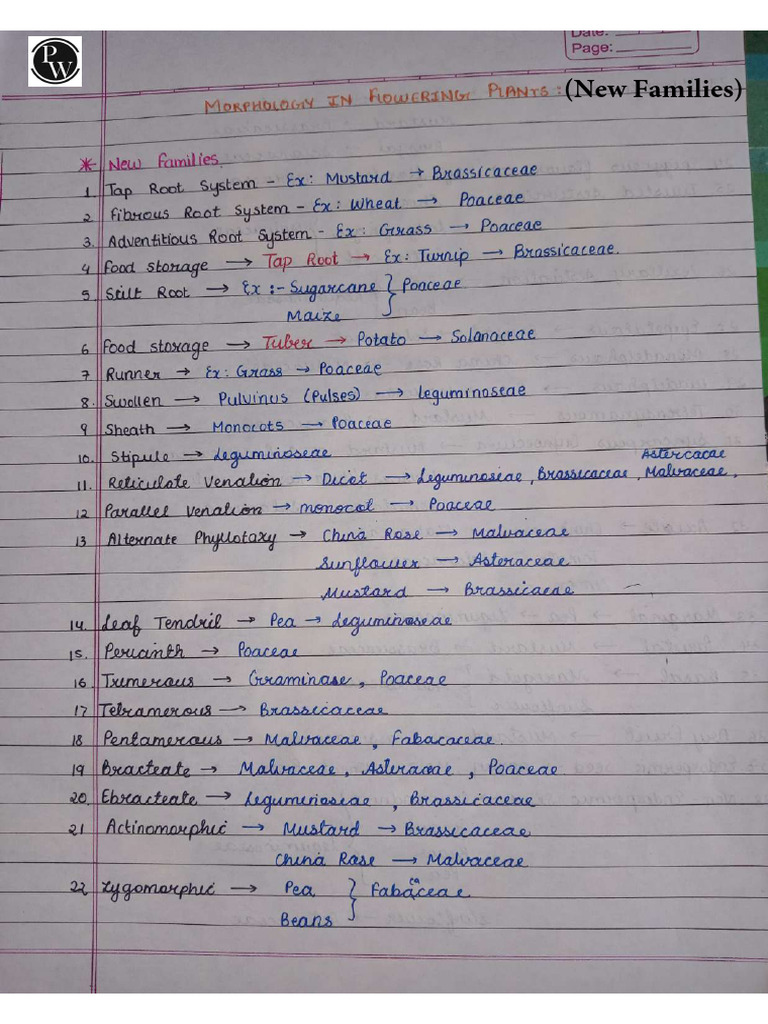 PW
Date:
Page:
MORPHOLOGY IN FLOWERING PLANTS: (New Families)
* New families
1. Tap Root System - Ex: Mustard → Brassicaceae
2. Fibrous Root System - Ex: Wheat → Poaceae
3. Adventitious Root System - Ex: Grass → Poaceae
4 Food storage → Tap Root → Ex: Turnip → Brassicaceae.
5 Stilt Root → Ex :- Sugarcane } Poaceae
Maize
6 Food storage → Tuber → Potato → Solanaceae
7 Runner → Ex: Grass → Poaceae
8. Swollen → Pulvinus (Pulses) → Leguminoseae
9 Sheath → Monocots → Poaceae
10. Stipule → Leguminoseae
Astercacae
11. Reticulate Venation → Dicot → Leguminoseae, Brassicaceae, Malvaceae,
12 Parallel Venation → monocot → Poaceae
13 Alternate Phyllotaxy → China Rose → Malvaceae
Sunflower → Asteraceae
Mustard → Brassicaeae
14. Leaf Tendril → Pea → Leguminoseae
15. Perianth → Poaceae
16 Trimerous → Graminase, Poaceae
17 Tetramerous → Brassicaceae
18 Pentamerous → Malvaceae, Fabacaceae.
19 Bracteate → Malvaceae, Asteraceae, Poaceae
20. Ebracteate → Leguminoseae, Brassicaceae
21 Actinomorphic → Mustard → Brassicaceae
China Rose → Malvaceae
22 Zygomorphic → Pea } Fabaceae
Beans